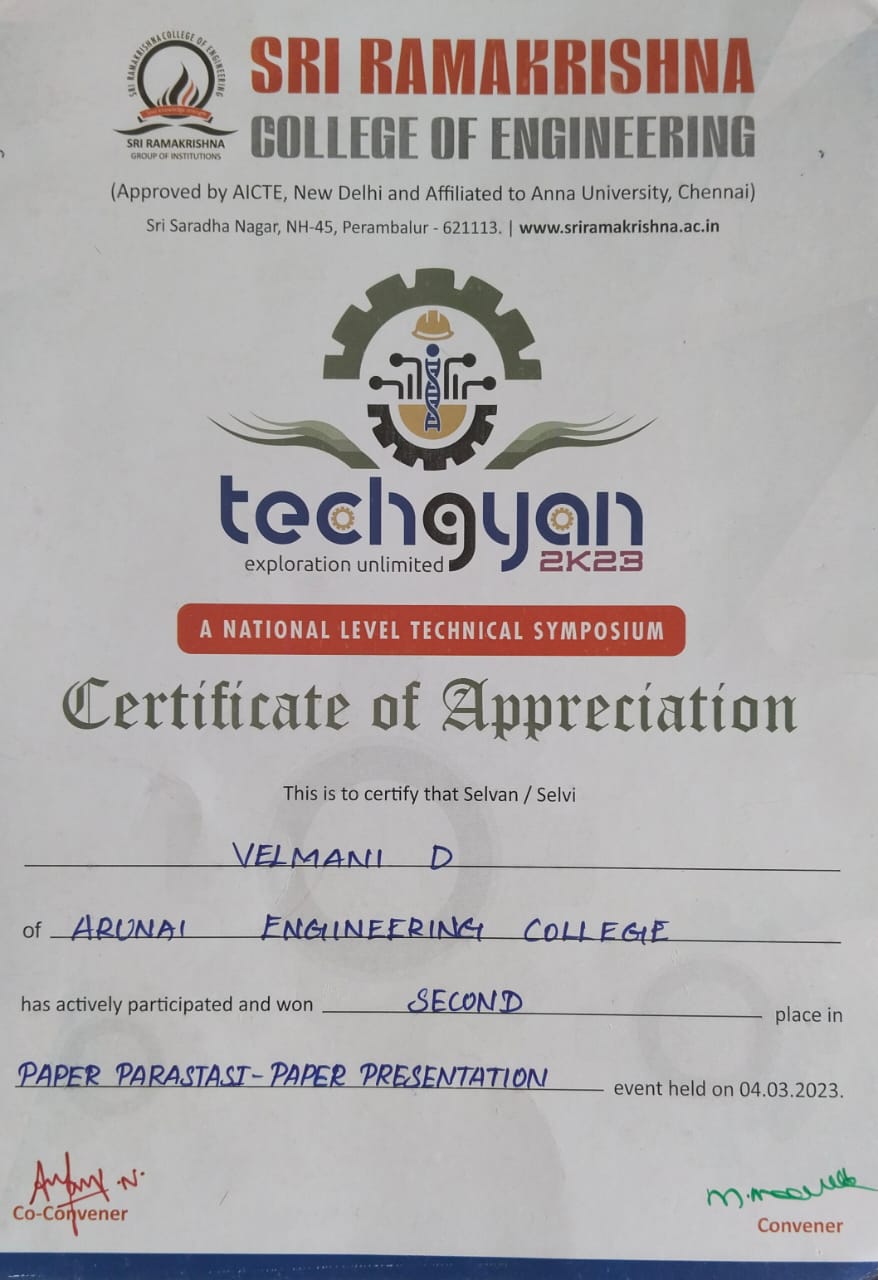 SRI RAMAKRISHNA COLLEGE OF ENGINEERING
SRI RAMAKRISHNA
GROUP OF INSTITUTIONS
SRI RAMAKRISHNA
COLLEGE OF ENGINEERING
(Approved by AICTE, New Delhi and Affiliated to Anna University, Chennai)
Sri Saradha Nagar, NH-45, Perambalur - 621113. | www.sriramakrishna.ac.in
techgyan
exploration unlimited 2K23
A NATIONAL LEVEL TECHNICAL SYMPOSIUM
Certificate of Appreciation
This is to certify that Selvan / Selvi
VELMANI D
of ARUNAI ENGINEERING COLLEGE
has actively participated and won SECOND place in
PAPER PARASTASI-PAPER PRESENTATION event held on 04.03.2023.
Co-Convener
Convener